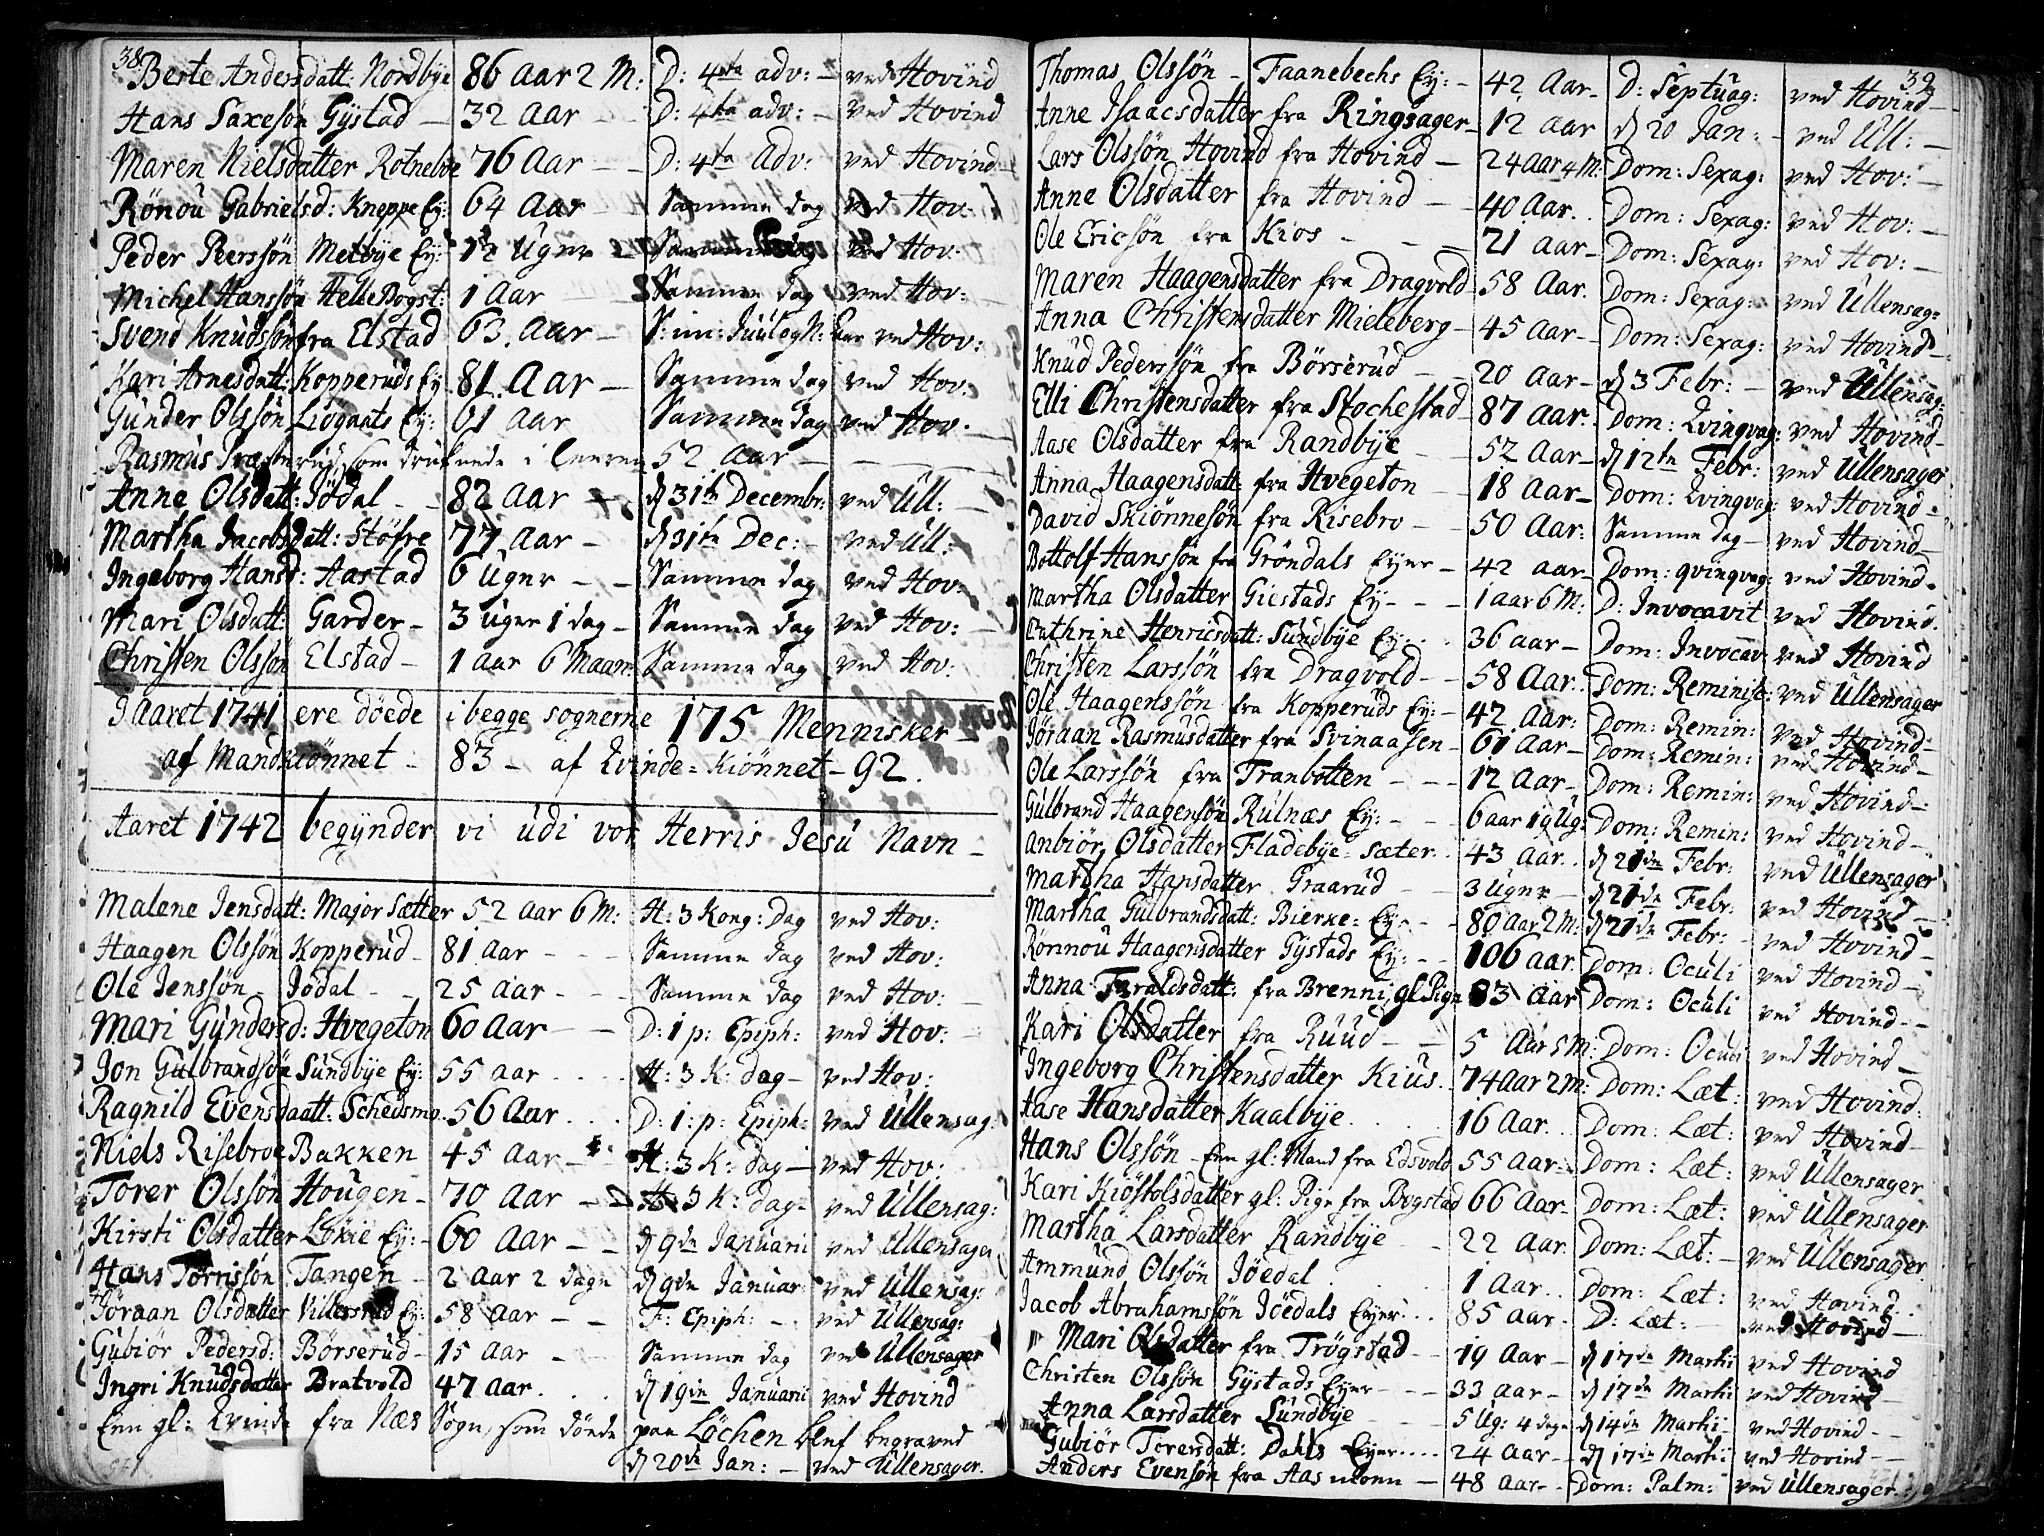 38
Berte Andersdatt: Nordbye 86 Aar 2 M: D: 4ta adv: – ved Hovind
Hans Saxesøn Gystad – 32 Aar – D: 4ta adv: – ved Hovind
Maren Nielsdatter Rotneboe 76 Aar – D: 4ta Adv: ved Hovind –
Rönou Gabrielsd: Kneppe Ey: 64 Aar – Samme dag ved Hov:
Peder Peerssön Melbye Ey: 12 Uger – Samme dag ved Hov:
Michel Hanssön Helle Bogst: 1 Aar – Samme dag ved Hov:
Svend Knudsön fra Elstad 63. Aar – ved Hov:
Kari Arnesdatt: Kopperuds Ey 81. Aar – Samme dag ved Hov:
Gunder Olssön Liögaats Ey: 61 Aar Samme dag ved Hov. –
Rasmus som druknede i Leeren 52 Aar –
Anne Olsdatt: Jödal – 82 Aar – d 31te Decembr: ved Ull: –
Martha Jacobsdatt: Stöfre 77 Aar – d 31te Dec: – ved Ull:
Ingeborg Hansd: Aastad 6 Uger – Samme dag ved Hov:
Mari Olsdatt: Garder – 3 Uger 1 dag – Samme dag ved Hov: –
Christen Olssön Elstad – 1 Aar 6 Maan: Samme dag ved Hov:
I Aaret 1741 ere döede i begge sognerne 175 Mennisker –
af Mandkiönnet – 83 – af Qvinde = kiönnet – 92.
Aaret 1742 begynder vi udi vor Herris Jesu Navn –
Malene Jensdatt: Major Sætter 52 Aar 6 M: H: 3 Kong: Dag ved Hov:
Haagen Olssön Kopperud – 81 Aar – – – Samme dag ved Hov:
Ole Jenssön – Jödal – – 25 Aar – – – Samme dag ved Hov: –
Mari Gyndersd: Hvegeton 60 Aar – – D: 1 p: Epiph: ved Hov: –
Jon Gulbrandsön Sundbye Ey: 55 aar . . . . H: 3 K: dag – ved Hov:
Ragnild Evensdaatt: Schedsmo . 56 Aar . . . D: 1: p: Epiph: ved Ullensag:
Niels Risebroe Bakken 45 Aar – – H: 3 K: dag – ved Hov:
Torer Olssön Hougen – 70 Aar – – H: 3 K: dag – ved Ullensag:
Kirsti Olsdatter Lökie Ey: – 60 Aar – – d 9de Januarii ved Ullensager
Hans Törrissön Tangen – 2 Aar 2 dage d 9de Januar: ved Ullensag:
Jöraan Olsdatter Villersrud Ey: 58 Aar – – F: Epiph: – ved Ullensag:
Gubiör Pedersd: Börserud – 15 Aar – Samme dag ved Ullensager
Ingri Knudsdatter Bratvold 47 Aar . . . . d 19de Januarii ved Hovind
Een gl: Qvinde fra Næs Sogn, som döede paa Löchen blef begraved
d 20de Jan: – ved Ullensager.
39
Thomas Olssön – Faanebechs Ey: – 42 Aar – D: Septuag: ved Hovind –
Anne Isaacsdatter fra Ringsager – 12 Aar d 20 Jan: – ved Ull: –
Lars Olssön Hovind fra Hovind – 24 Aar 4 M: Dom: Sexag: ved Hov: –
Anne Olsdatter fra Hovind – – 40 Aar . . Dom: Sexag: ved Hov: –
Ole Ericsön fra Kios – – – 21 Aar – Dom: Sexag: ved Hov: –
Maren Haagensdatter fra Dragvold – 58 Aar. Dom: Sexag: ved Ullensag:
Anna Christensdatter Mieleberg – 45 Aar – Dom: Sexag: ved Hovind –
Knud Pederssön fra Börserud – – 20 Aar – d 3 Febr: – ved Ullensag:
Elli Christensdatter fra Stochestad – 87 Aar. Dom: Qvinqvag: ved Hovind –
Aase Olsdatter fra Randbye – 52 Aar – d 12te Febr: ved Ullensager
Anna Haagensdatt: fra Hvegeton – – 18 Aar – Dom: Qvinqvag: ved Hovind –
David Skiönnesön fra Risebro – – 50 Aar: Samme dag – ved Hovind –
Bottolf Hanssön fra Gröndals Eyer – 42 Aar – Dom: qvinqvag: ved Hovind –
Martha Olsdatter Giestads Ey – – – 1 aar 6 M: D: Invocavit ved Hovind.
Cathrine Henricsdatt: Sundbye Ey: . . 36 aar – Dom: Invocav: ved Hovind
Christen Larssön fra Dragvold – – 58 Aar. . Dom: Reminisc: ved Ullensager
Ole Haagenssön fra Kopperuds Ey: – 42 Aar: Dom: Remin: ved Hovind –
Jöraan Rasmusdatter fra Svinaasen – 61 Aar – Dom: Remin: ved Hovind –
Ole Larssön fra Tranbotten – – – 12 Aar – Dom: Remin: ved Hovind –
Gulbrand Haagensön Rulnæs Ey: – – 6 aar 19 Ug: Dom: Remin: ved Hovind –
Anbiör Olsdatter Fladebye = sæter . . 43 Aar . . d 21de Febr: ved Ullensager
Martha Hansdatter Graarud – – 3 Uger – d 21de Febr: ved Hovind –
Martha Gulbrandsdatt: Bierke = Ey: – – 80 Aar 2 M: d 21de Febr: – ved Hovind –
Rönnou Haagensdatter Gystads Ey: – – 106 aar Dom: Oculi ved Hovind –
Anna Taraldsdatt: fra Brenni, gl Pige 83 Aar Dom: Oculi ved Hovind –
Kari Olsdatter fra Ruud – – 5 Aar 5 M: Dom: Oculi ved Hovind –
Ingeborg Christensdatter Kius . . 74 Aar 2 M: Dom: Læt: ved Hovind:
Aase Hansdatter Kaalbye . . . . 16 Aar . . Dom: Læt: ved Hovind –
Hans Olssön – Een gl: Mand fra Edsvold 55 Aar – Dom: Læt: ved Ullensager.
Kari Kiöstolsdatter gl: Pige fra Bogstad 66 Aar – Dom: Læt: ved Ullensager
Martha Larsdatter Randbye – 22 Aar. Dom: Læt: – ved Ullensager
Ammund Olssön Jöedal . . . 1 Aar . . Dom: Læt: ved Hovind . .
Jacob Abrahamssön Jöedals Eyer: . . 85 Aar – D: Læt: – ved Hovind –
Mari Olsdatter fra Trögstad – – 19 Aar – d 17de Martii ved Hovind
Christen Olssön Gystads Eyer – – – 33 Aar – d 17de Martii ved Hovind –
Anna Larsdatter Sundbye – – 5 Ug: 4 dage d 14de Martii ved Hovind – –
Gubiör Torersdatt: Dahls Eyer . . . . 24 Aar – d 17de Martii ved Hovind – –
Anders Evensön fra Aasmoen – 48 Aar – Dom: Palm: ved Ullensager